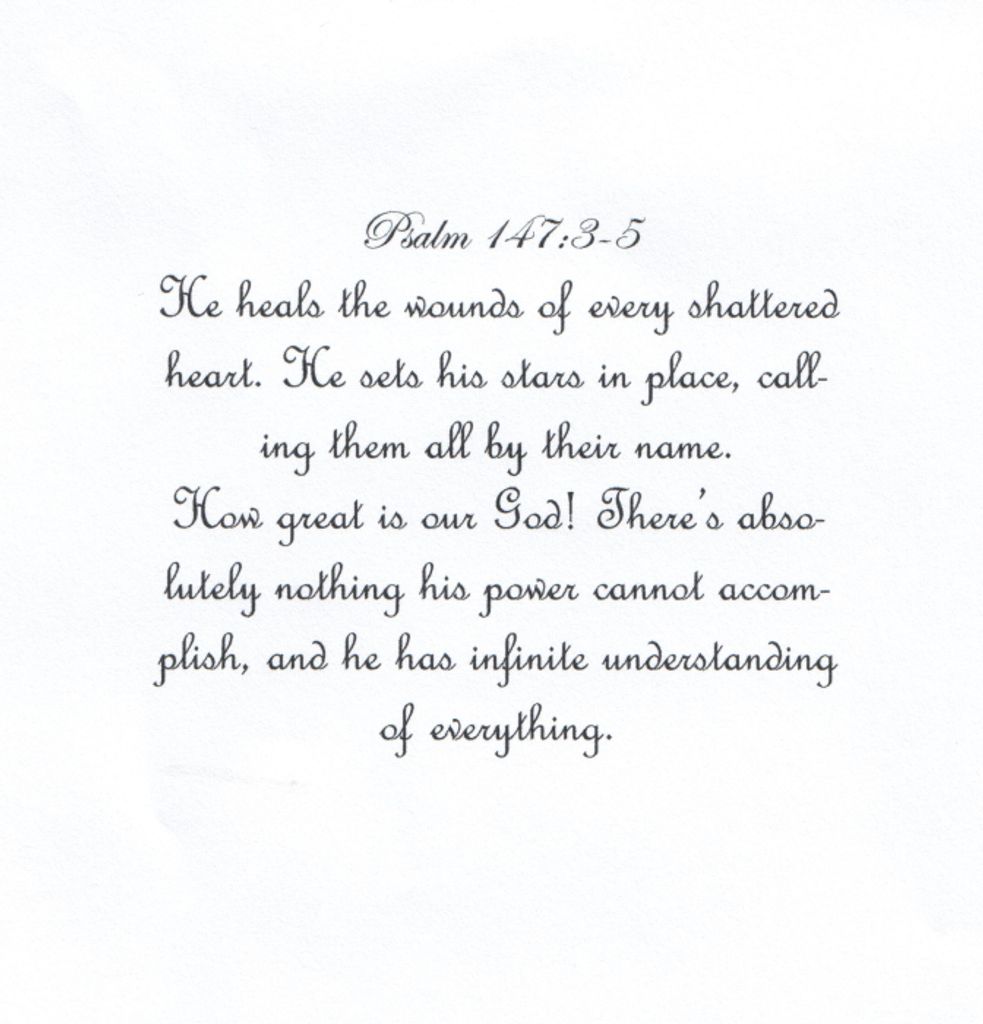 Psalm 147:3-5
He heals the wounds of every shattered
heart. He sets his stars in place, call-
ing them all by their name.
How great is our God! There's abso-
lutely nothing his power cannot accom-
plish, and he has infinite understanding
of everything.